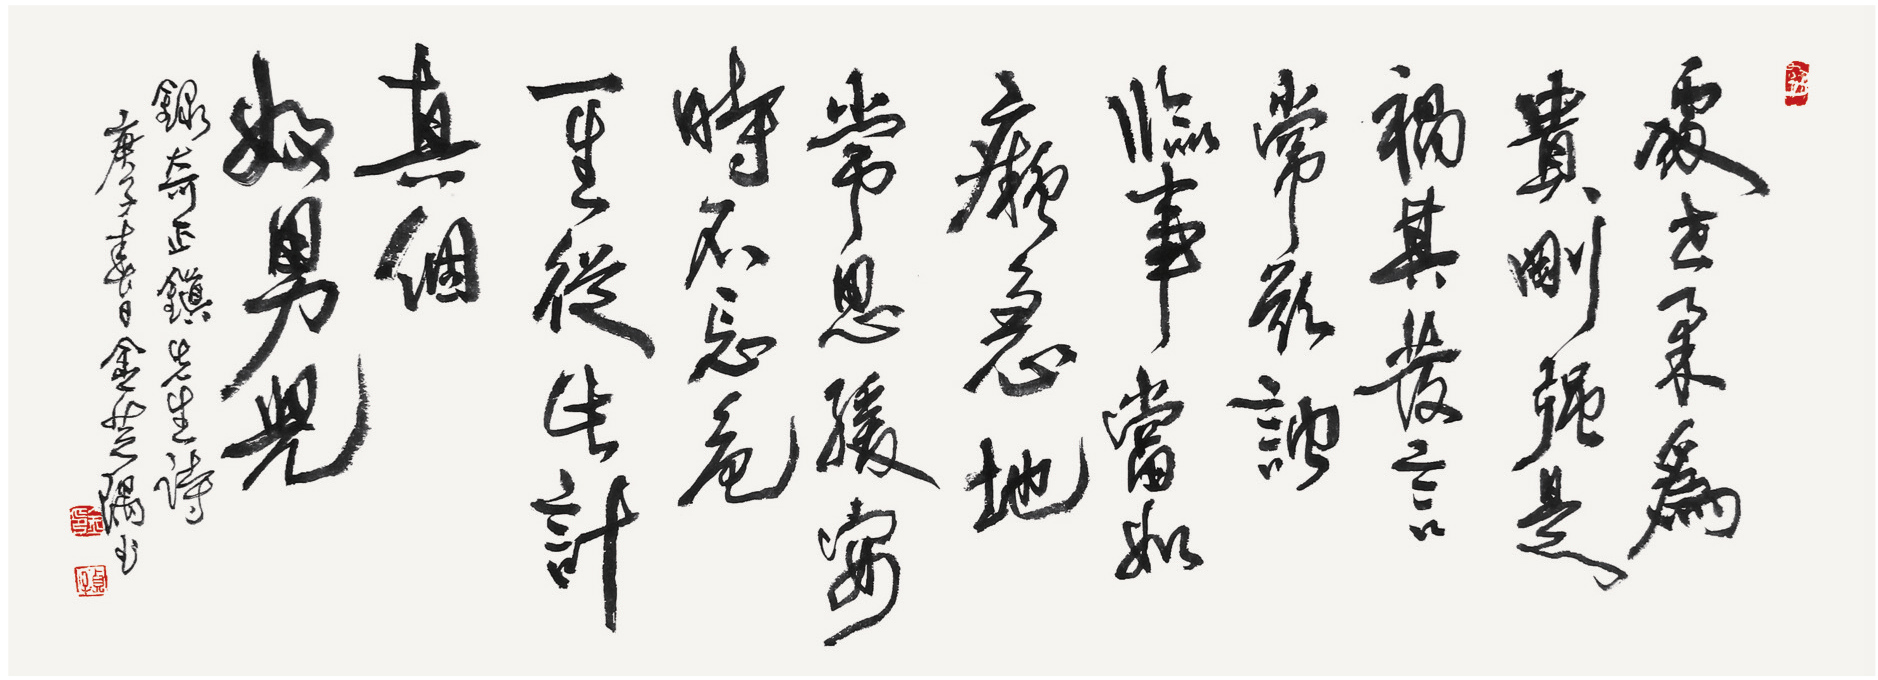 處世柔爲
貴剛强是
禍其發言
常欲訥
臨事當如
癡急地
常思緩安
時不忘危
一生從此計
真個
好男兒
錄奇正鎭先生詩
庚子春日金芝隅書